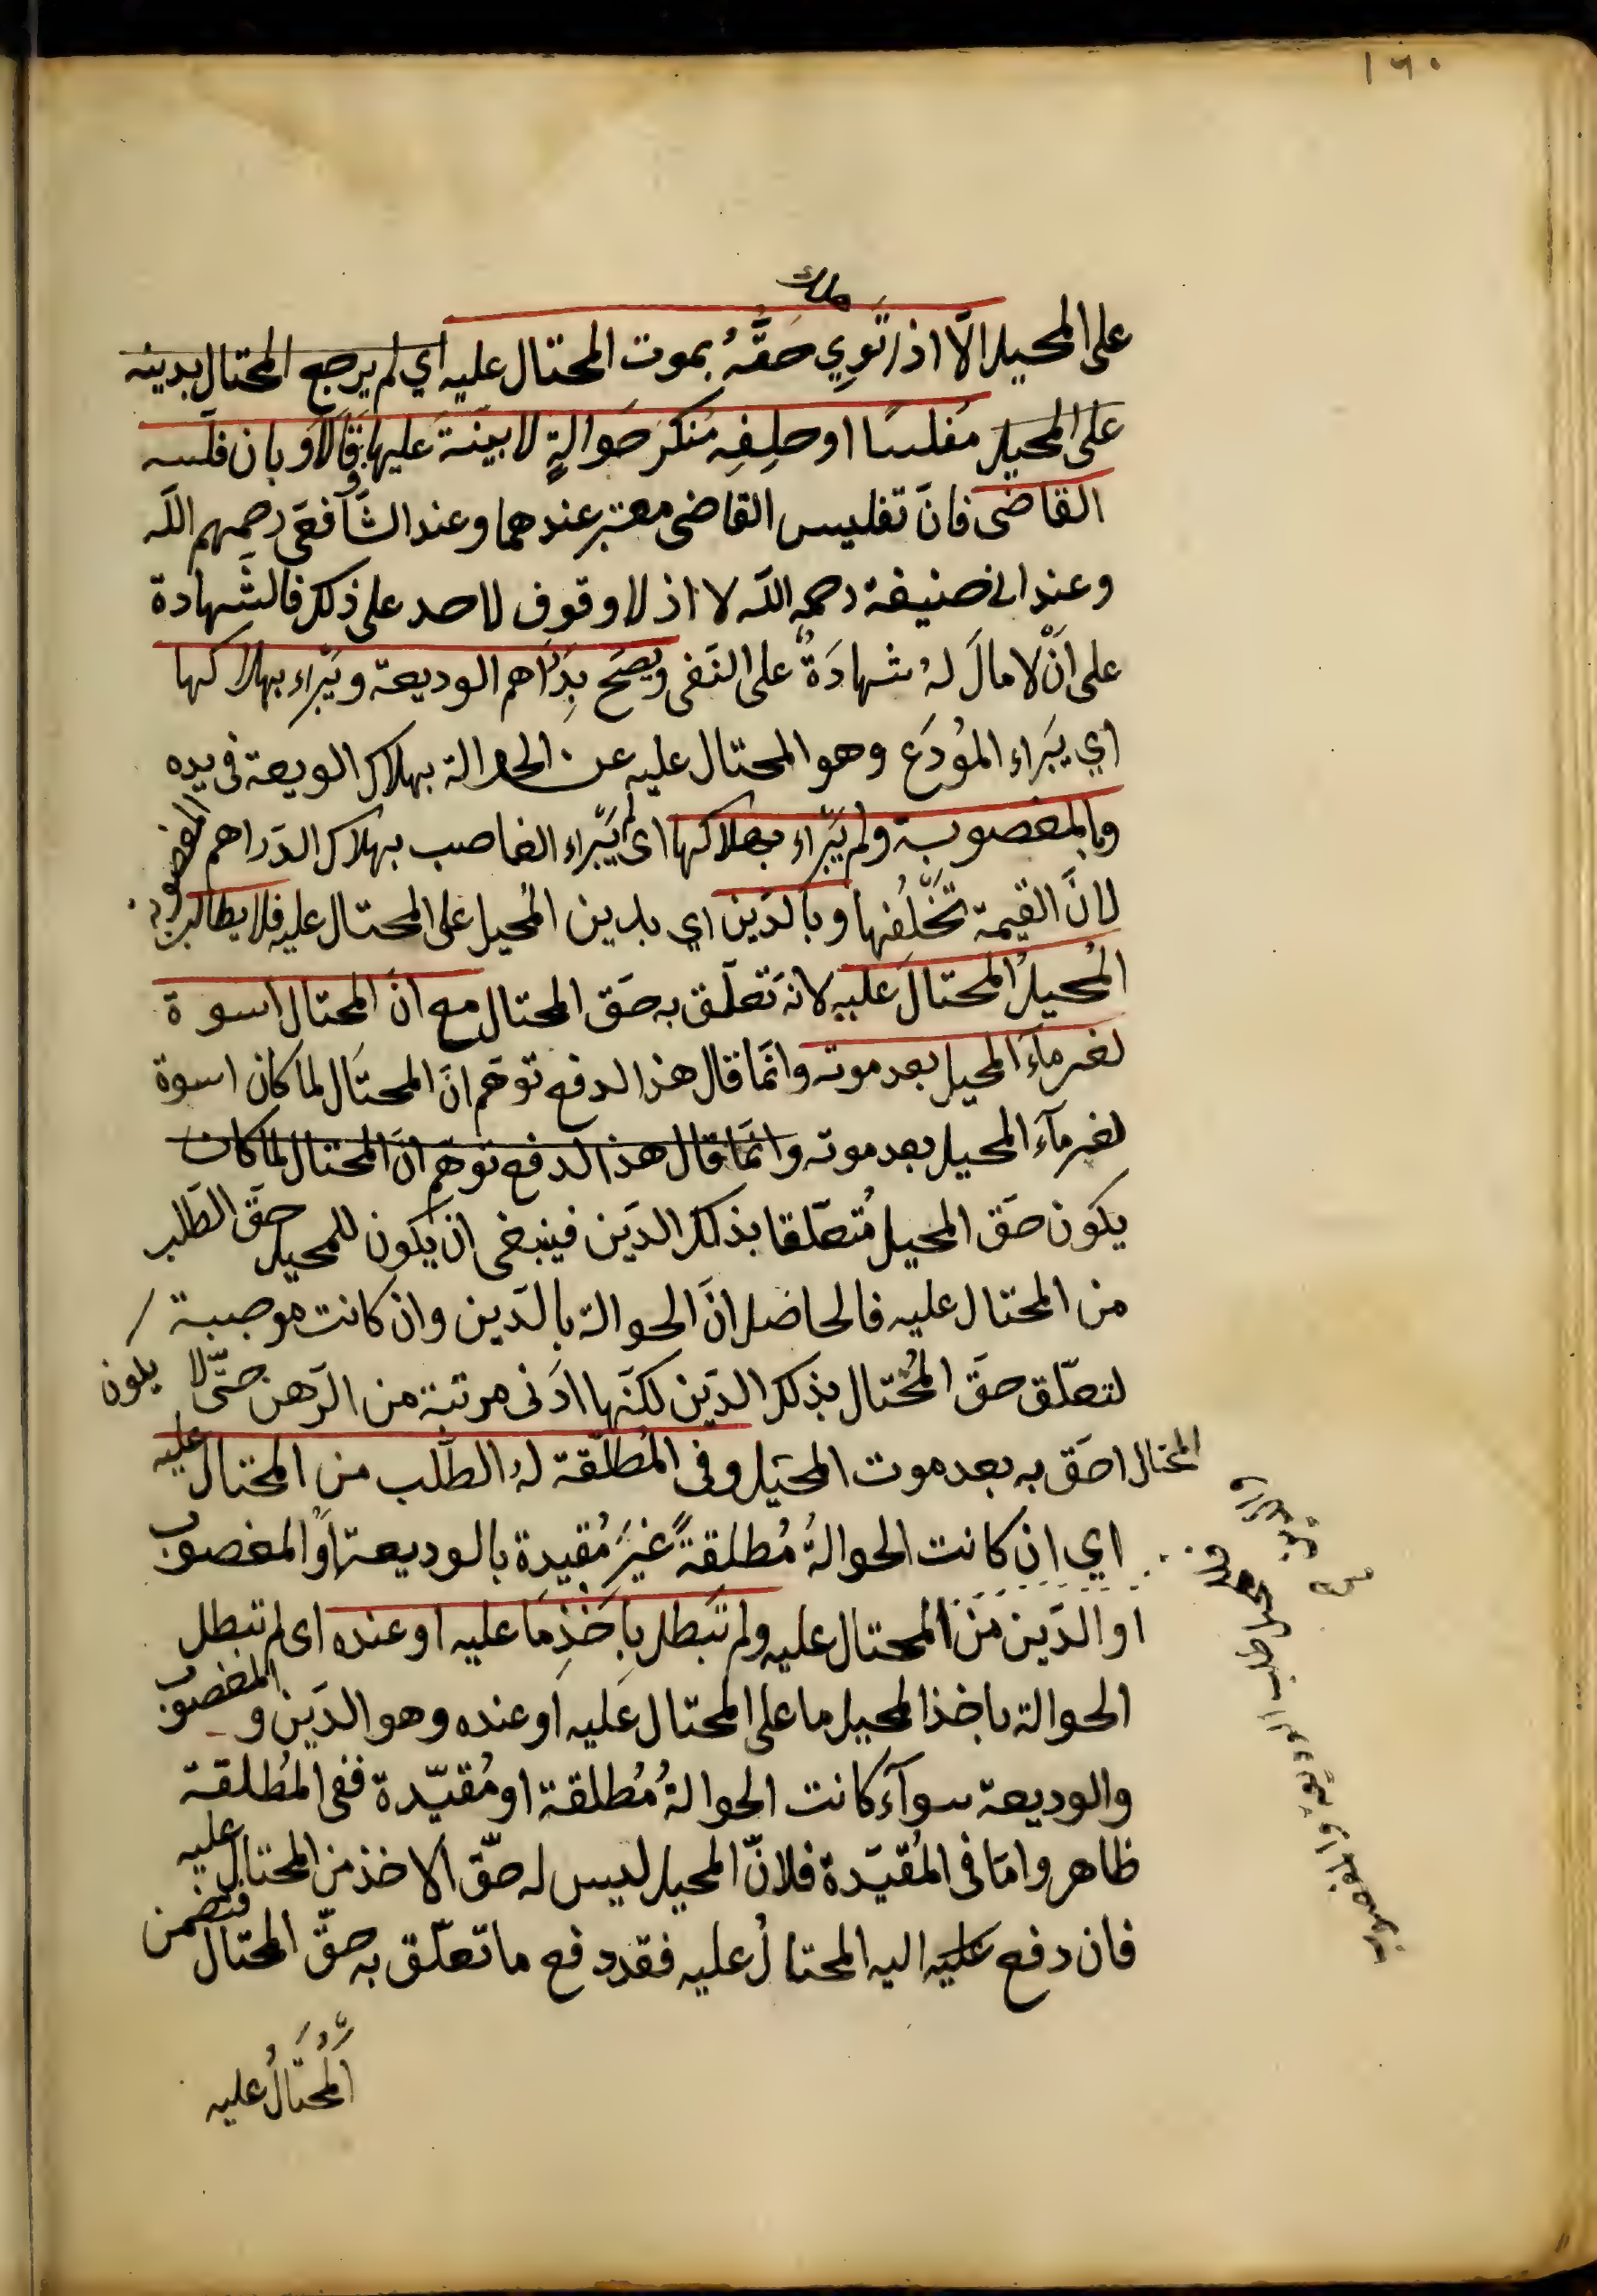 ١٦٠
هلك
على المحيل الّا اذا تَوِي حَقُّهُ بموت المحتال عليه اي لم يرجع المحتال بدينه
على المحيل مفلسًا او حلِفِه مُنكرَ حَوالةٍ لا بيّنة عليها وقالا او بان فلّسه
القاضى فانّ تفليس القاضى معتبر عندهما وعند الشّافعى رحمهم اللّه
وعند ابى حنيفة رحمه اللّه لا اذ لا وقوف لاحد على ذلك فالشّهادة
على انْ لا مالَ لهُ شهادَةٌ على النّفى ويصحّ بِدَراهم الوديعة ويَبْراء بهلاكها
اي يبَراء المُودَع وهو المحتال عليه عن الحوالة بهلاك الويعة فى يده
وبالمغصوبة ولم يَبْراء بهلاكها اى لم يَبْراء الغاصب بهلاك الدّراهم المغصوبة
لانّ القيمة تخْلُفُها وبالدّين اي بدين المُحيل على المحتال عليه فلا يطالب
المُحيلُ المحتالَ عليه لانّه تَعلّق به حَق المحتال مع انّ المحتال اسوة
لغرماءَ المحيل بعد موته وانّما قال هذا لدفع توهّم انّ المحتال لما كان اسوة
لغرمآءَ المحيل بعد موته وانّما قال هذا لدفع توهّم انّ المحتال لما كان
يكون حَق المحيل مُتعلّقا بذلك الدّين فينبغى ان يكون للمحيل حقّ الطّلب
من المحتال عليه فالحاصل انّ الحوالة بالدّين وان كانت موجبة
لتعلّق حقّ المُحتال بذلك الدّين لكنّها ادنى مرتبة من الرّهن حتّى لا يكون
المحتال احَق به بعد موت المحيل وفى المُطلَقة لهُ الطّلب من المحتال عليه
اي ان كانت الحوالةُ مُطلقةً غيرَ مُقيدة بالوديعة او المغصوب
او الدّين من المحتال عليه ولم تَبطل بِاَخْذِ مَا عليه او عنده اى لم تبطل
الحوالة باخذ المحيل ما على المحتال عليه او عنده وهو الدّين والمغصوب
والوديعة سوآء كانت الحوالةُ مُطلقة او مُقيّدة ففى المُطلقة
ظاهر وامّا فى المُقيّدة فلانّ المحيل ليس له حقّ الاخذ من المحتال عليه
فان دفع عليه اليه المحتالُ عليه فقد دفع ما تعلّق به حقّ المحتال فتضمن
المُحتَالُ عليه
طلب الوديعة والمغصوب
والدين